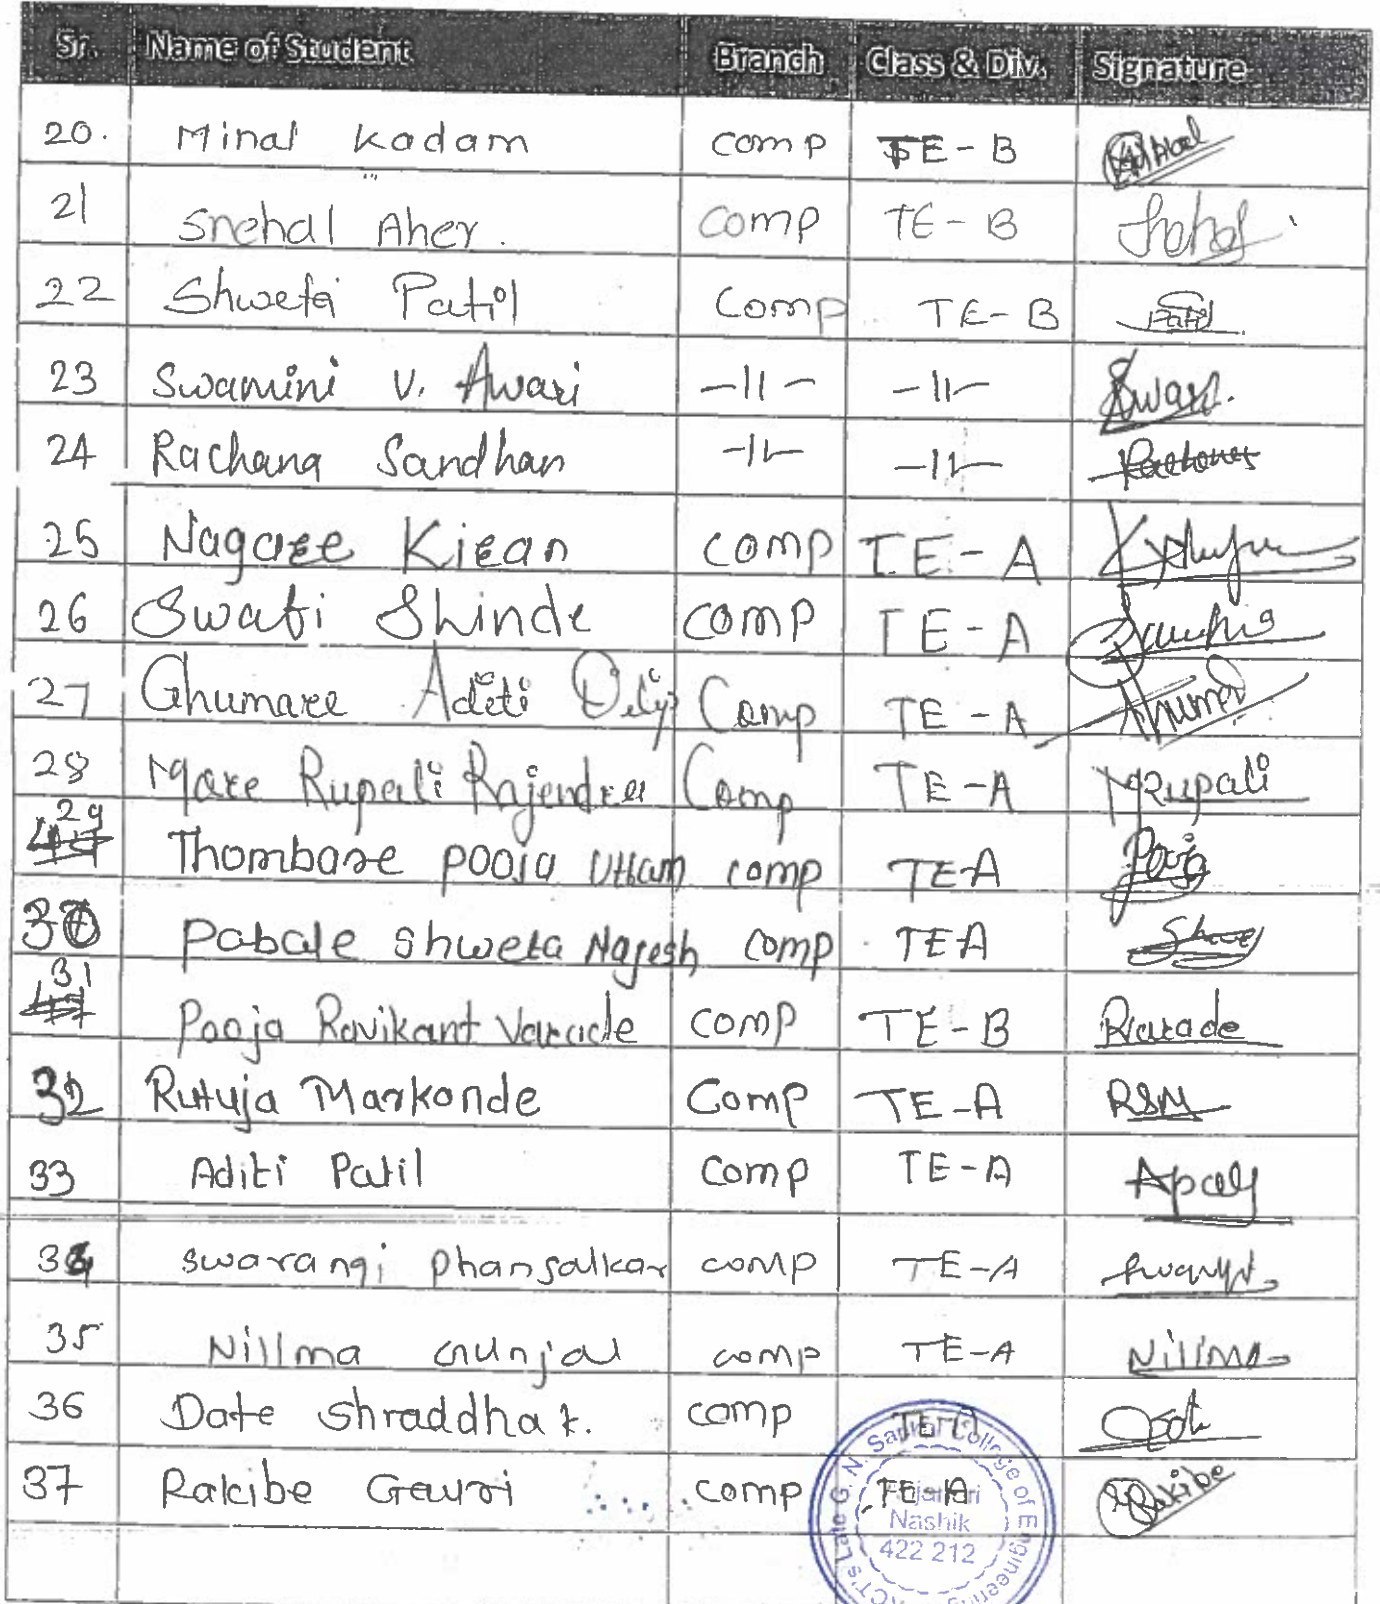 Sr. Name of Student Branch Class & Div. Signature
20. Minal Kadam comp TE-B
21 Snehal Aher. comp TE-B Snehal
22 Shweta Patil Comp TE-B Patil
23 Swamini V. Awari -11- -11- Awari.
24 Rachana Sandhan -11- -11- Rachana
25 Nagare Kiran comp TE-A
26 Swati Shinde comp TE-A
27 Ghumare Aditi Dilip Comp TE-A
28 More Rupali Rajendra Comp TE-A MRupali
29 Thombare Pooja Uttam comp TE-A Pooja
30 Pabale Shweta Nagesh comp TE-A
31 Pooja Ravikant Varade comp TE-B RVarade
32 Rutuja Markonde Comp TE-A RSM
33 Aditi Patil comp TE-A
34 swarangi phansalkar comp TE-A
35 Nilima Gunjal comp TE-A Nilima
36 Date Shraddha K. comp TE-A
37 Rakibe Gauri comp TE-A Rakibe
G. N. Sapkal College of Engineering
Anjaneri
Nashik
422 212